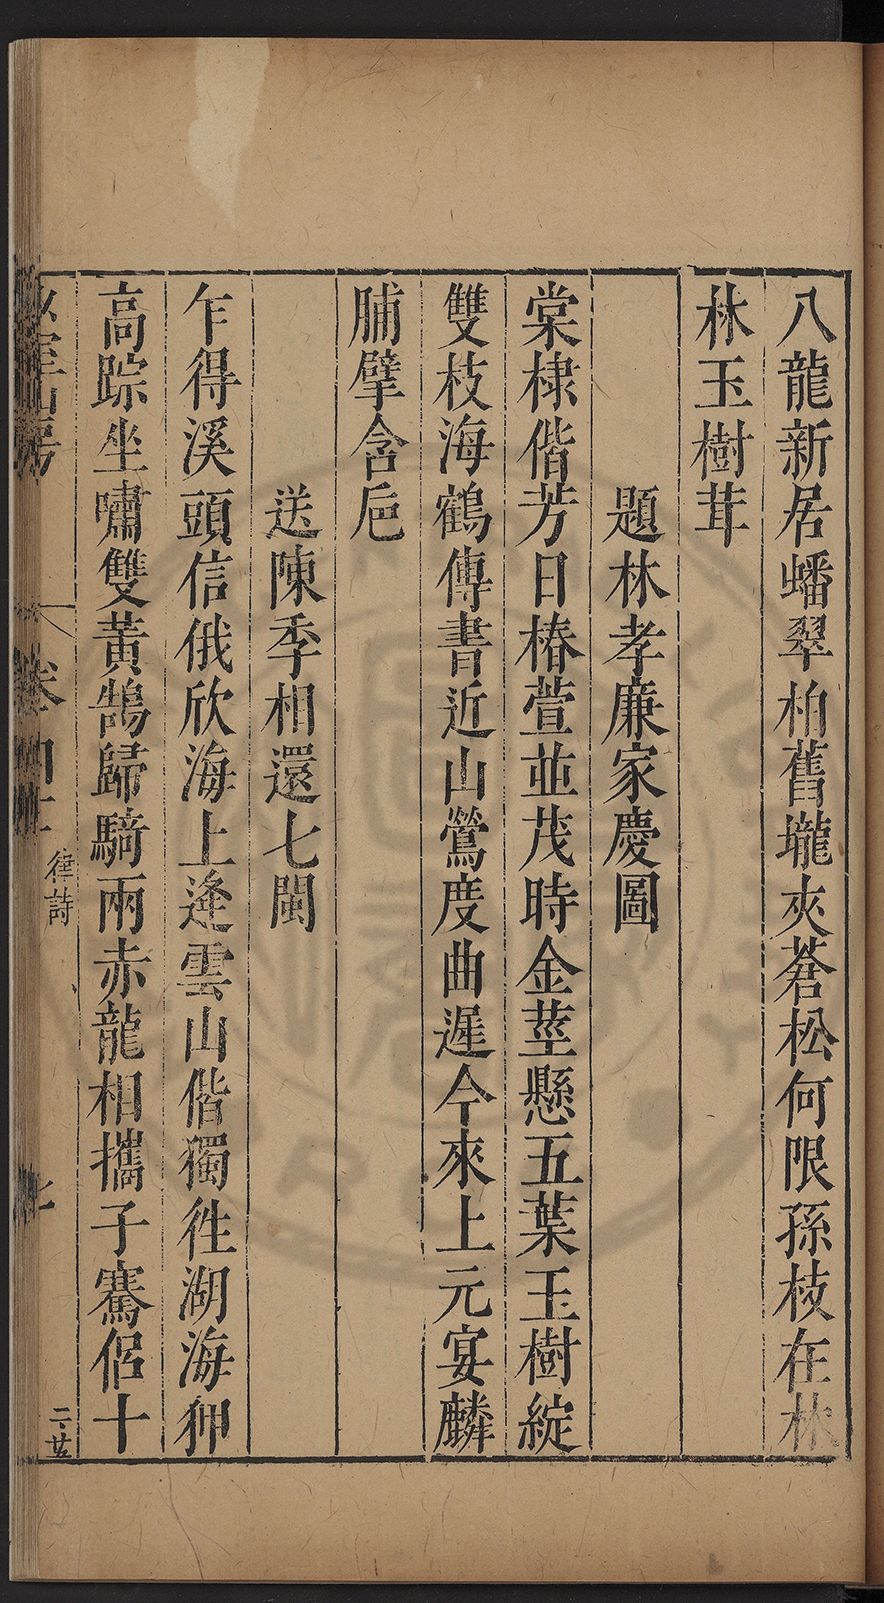 八龍新居蟠翠柏舊壠夾蒼松何限孫枝在林
林玉樹茸
題林孝廉家慶圖
棠棣偕芳日椿萱並茂時金莖懸五葉玉樹綻
雙枝海鶴傳書近山鶯度曲遲今來上元宴麟
脯擘含巵
送陳季相還七閩
乍得溪頭信俄欣海上逢雲山偕獨徃湖海狎
高踪坐嘯雙黃鵠歸騎兩赤龍相攜子騫侶十
山房
卷四十
律詩
二·廿五